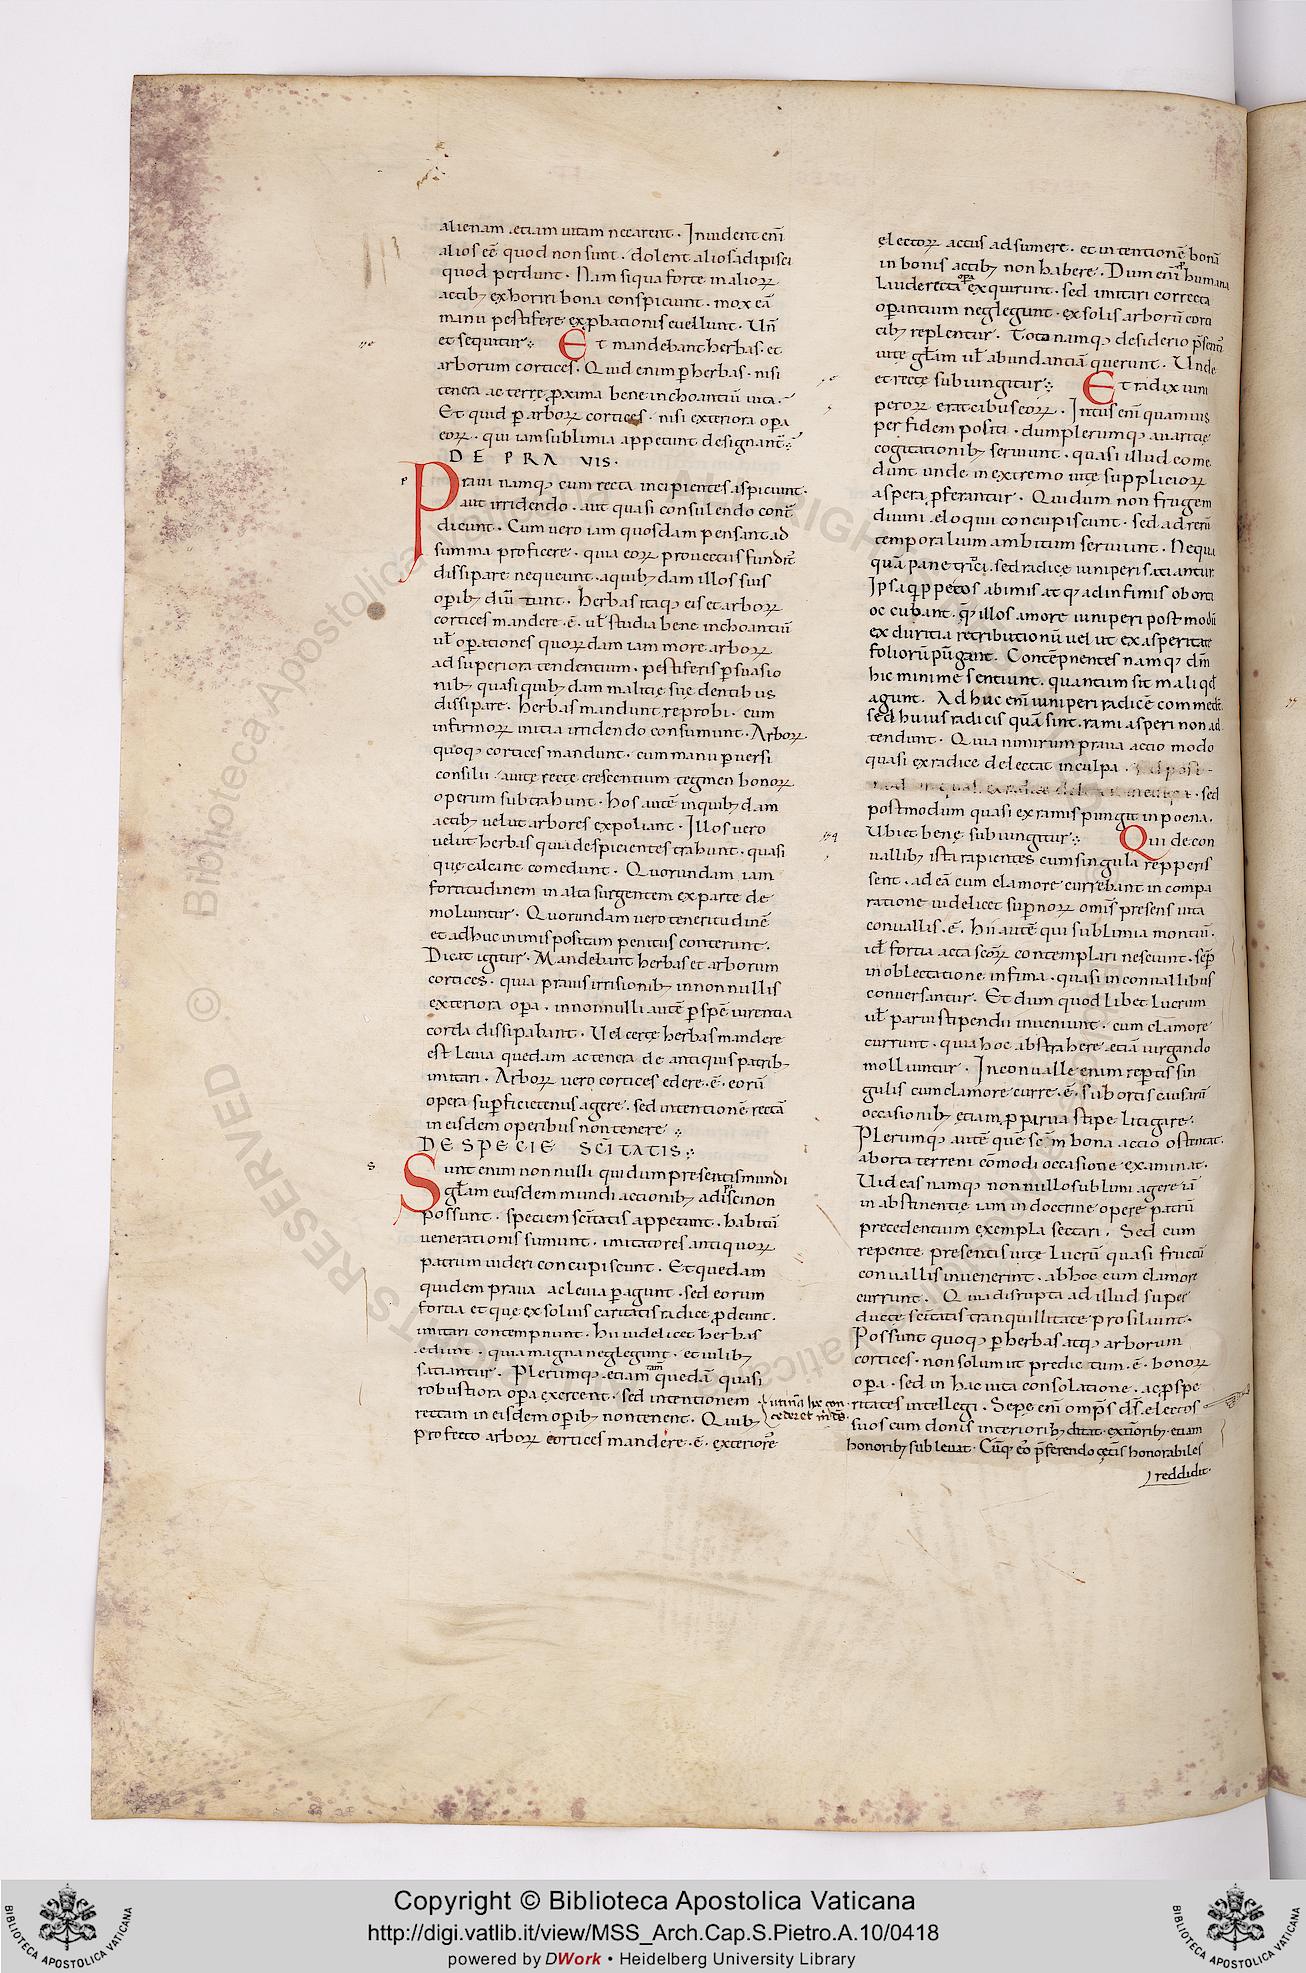 alienam. etiam uitam necarent. Inuident eni͞
alios ee͞ quod non sunt. dolent alios adipisci
quod perdunt. Nam siqua forte in alioꝝ
actibꝫ exhoriri bona conspiciunt. mox ea͞
manu pestifere exꝓbationis euellunt. Un͞
et sequitur: Et mandebant herbas. et
arborum cortices. Quid enim ꝑ herbas. nisi
tenera ac terrę ꝓxima bene inchoantiu͞ uita.
Et quid ꝑ arboꝝ cortices. nisi exteriora oꝑa
eoꝝ. qui iam sublimia appetunt designant͞:
DE PRAVIS.
Praui namqꝫ cum recta incipientes aspiciunt.
aut irridendo. aut quasi consulendo cont͞
dicunt. Cum uero iam quosdam pensant ad
summa proficere. quia eoꝝ prouectus fundit͞
dissipare nequeunt. a quibꝫdam illos suis
oꝑibꝫ diu͞ tunt. herbas itaqꝫ eis et arboꝝ
cortices mandere. e͞. ul̵ studia bene inchoantiu͞
ul̵ oꝑationes quoꝝdam iam more arboꝝ
ad superiora tendentium. pestiferis ꝑsuasio
nibꝫ quasi quibꝫdam malitię suę dentibus
dissipare. herbas mandunt reprobi. cum
infirmoꝝ initia irridendo consumunt. Arboꝝ
quoqꝫ cortices mandunt. cum manu ꝑuersi
consilii a uitę rectę crescentium tegmen bonoꝝ
operum subtrahunt. hos aute͞ in quibꝫdam
actibꝫ uelut arbores expoliant. Illos uero
uelut herbas quia despicientes trahunt. quasi
quę calcant comedunt. Quorundam iam
fortitudinem in alta surgentem ex parte de
moliuntur. Quorundam uero teneritudine͞
et adhuc in imis positam penitus conterunt.
Dicat igitur. Mandebant herbas et arborum
cortices. quia prauis irrisionibꝫ in nonnullis
exteriora oꝑa. in nonnulli aute͞ ꝑ spe͞ uirentia
corda dissipabant. Uel certę herbas mandere
est leuia quędam ac tenera de antiquis patribꝫ
imitari. Arboꝝ uero cortices edere. e͞. eoru͞
opera suꝑficietenus agere. sed intentione͞ recta͞
in eisdem operibus non tenere:
DE SPECIE SC͞ITATIS:
Sunt enim nonnulli qui dum presentis mundi
gl̵am eiusdem mundi actionibꝫ adipisci non
possunt. speciem sc͞itatis appetunt. habitu͞
uenerationis sumunt. imitatores antiquoꝝ
patrum uideri concupiscunt. Et quędam
quidem praua ac leuia ꝑagunt. sed eorum
fortia et quę ex soluis caritatis radice ꝓdeunt.
imitari contempnunt. hii uidelicet herbas
edunt. quia magna neglegunt. et uilibꝫ
satiantur. Plerumqꝫ etiam tam͞ queda͞ quasi
robustiora oꝑa exercent. sed intentionem
rectam in eisdem oꝑibꝫ non tenent. Quibꝫ
profecto arboꝝ cortices mandere. e͞. exteriore͞
electoꝝ actus adsumere. et intentione͞ bona͞
in bonis actibꝫ non habere. Dum eni͞ humana
laude recta oꝑa exquirunt. sed imitari correcta
oꝑantium neglegunt. ex solis arboru͞ corti
cibꝫ replentur. Tota namqꝫ desiderio p͞sentis
uitę gl̵am ul̵ abundantia͞ querunt. Unde
et rectę subiungitur: Et radix iuni
peroꝝ erat cibus eoꝝ. Intus eni͞ quamuis
per fidem positi. dum plerumqꝫ auaritię
cogitationibꝫ seruiunt. quasi illud come
dunt unde in extremo uitę supplicioꝝ
aspera ꝑferantur. Qui dum non frugem
diuini eloquii concupiscunt. sed ad rem
temporalium ambitum seruiunt. Nequa
qua͞ pane tritici. sed radice iuniperi satiantur.
folioru͞ pu͞gant. Conte͞pnentes namqꝫ dm͞
hic minime sentiunt. quantum sit mali qd͞
agunt. Adhuc eni͞ iuniperi radice͞ commedt͞.
sed huius radicis qua͞ sint. rami asperi non ad
tendunt. Quia nimirum praua actio modo
quasi ex radice delectat in culpa.
sed
postmodum quasi ex ramis pungit in poena.
Ubi et bene subiungitur: Qui de con
uallibꝫ ista rapientes cum singula repperis
sent. ad ea͞ cum clamore currebant in compa
ratione uidelicet suꝑnoꝝ omis͞ presens uita
conuallis. e͞. hii aute͞ qui sublimia montiu͞.
id̵ fortia acta sc͞oꝝ contemplari nesciunt. semꝑ
in oblectatione infima. quasi in conuallibus
conuersantur. Et dum quod libet lucrum
ul̵ parui stipendii inueniunt. cum clamore
currunt. quia hoc abstrahere. etia͞ iurgando
molliuntur. In conualle enim reꝑtis sin
gulis cum clamore curre. e͞. subortis causaru͞
occasionibꝫ etiam ꝓ parua stipe litigare.
Plerumqꝫ aute͞ que͞ se͞ in bona actio ostentat.
aborta terreni co͞modi occasione examinat.
Uideas namqꝫ nonnullo sublimi agere
in abstinentię iam in doctrinę opere patru͞
precedentium exempla sectari. Sed cum
repente presentis uitę lucru͞ quasi fructu͞
conuallis inuenerint. ab hoc cum clamore
currunt. Quia disrupta ad illud super
ducte sc͞itatis tranquillitate prosiliunt.
Possunt quoqꝫ ꝑ herbas atqꝫ arborum
cortices. non solum ut predictum. e͞. bonoꝝ
oꝑa. sed in hac uita consolatione. ac ꝓspe
ritates intellegi. Sepę eni͞ omps͞ ds͞. electos
suos cum donis interioribꝫ ditat. exterioribꝫ etiam
honoribꝫ subleuat. Cu͞qꝫ eo͞ p͞ferendo cęt͞is honorabiles
reddidit.
Copyright © Biblioteca Apostolica Vaticana
http://digi.vatlib.it/view/MSS_Arch.Cap.S.Pietro.A.10/0418
powered by DWork • Heidelberg University Library